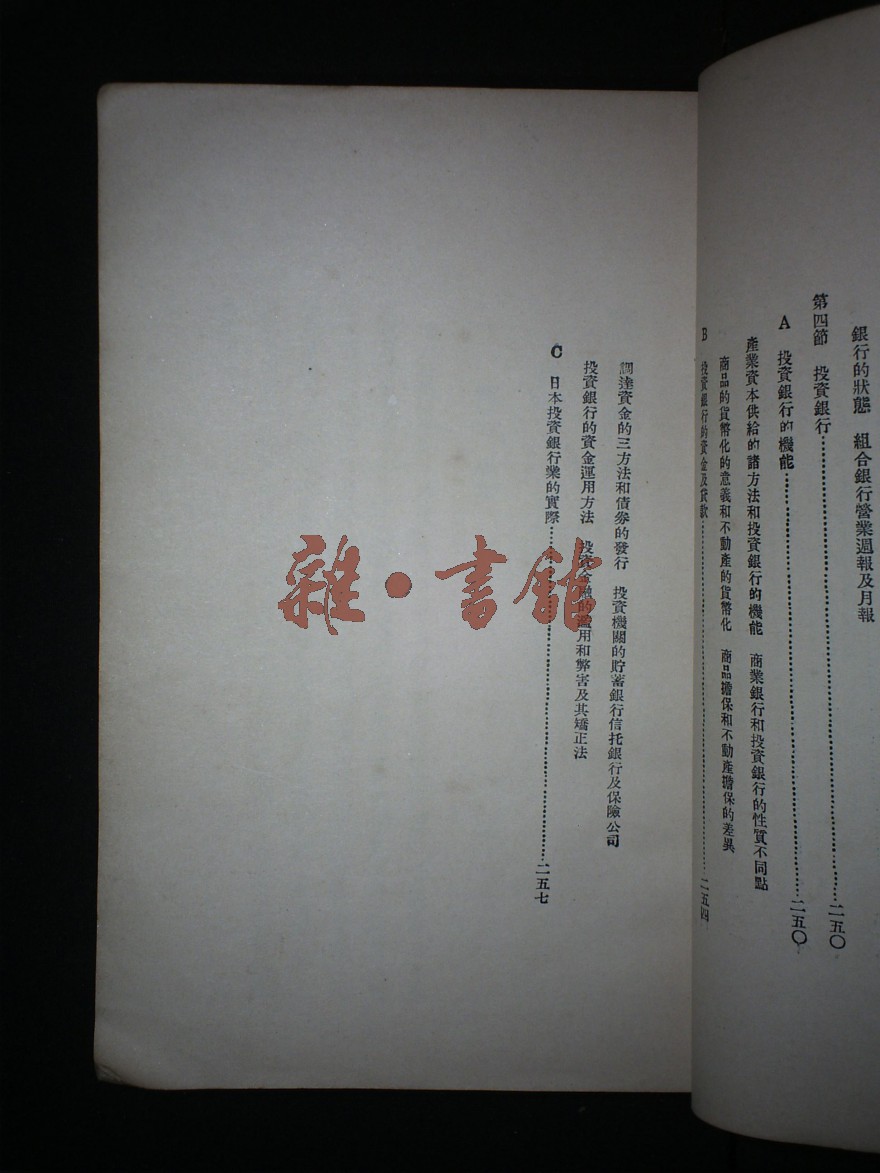 銀行的狀態　組合銀行營業週報及月報
第四節　投資銀行……二五〇
A　投資銀行的機能……二五〇
產業資本供給的諸方法和投資銀行的機能　商業銀行和投資銀行的性質不同點
商品的貨幣化的意義和不動產的貨幣化　商品擔保和不動產擔保的差異
B　投資銀行的資金及貸款……二五四
調達資金的三方法和債券的發行　投資機關的貯蓄銀行信托銀行及保險公司
投資銀行的資金運用方法　投資金融的濫用和弊害及其矯正法
C　日本投資銀行業的實際……二五七
雜·書館